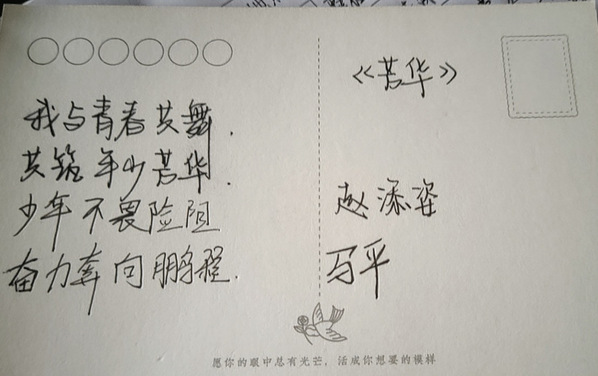 我与青春共舞.
共筑年少芳华.
少年不畏险阻
奋力奔向鹏程.
《芳华》
赵添姿
马平
愿你的眼中总有光芒，活成你想要的模样